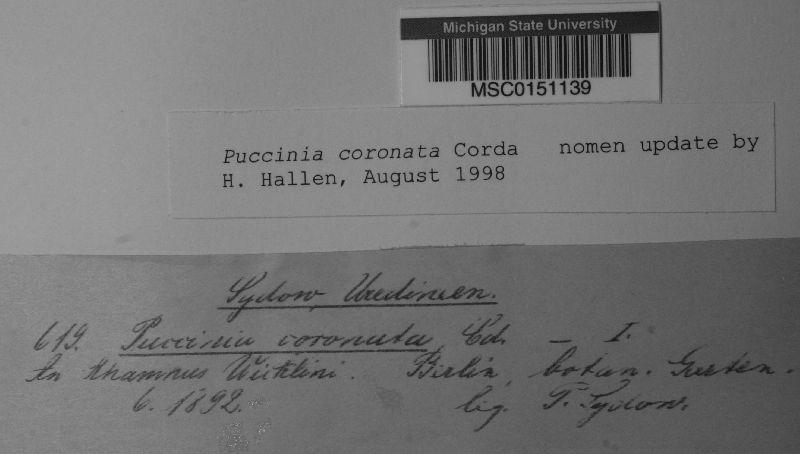 Michigan State University
MSC0151139
Puccinia coronata Corda nomen update by
H. Hallen, August 1998
Sydow, Uredineen.
619. Puccinia coronata, Cd. – I.
An Rhamnus Wicklini. Berlin, botan. Garten.
6. 1892. lig. P. Sydow.